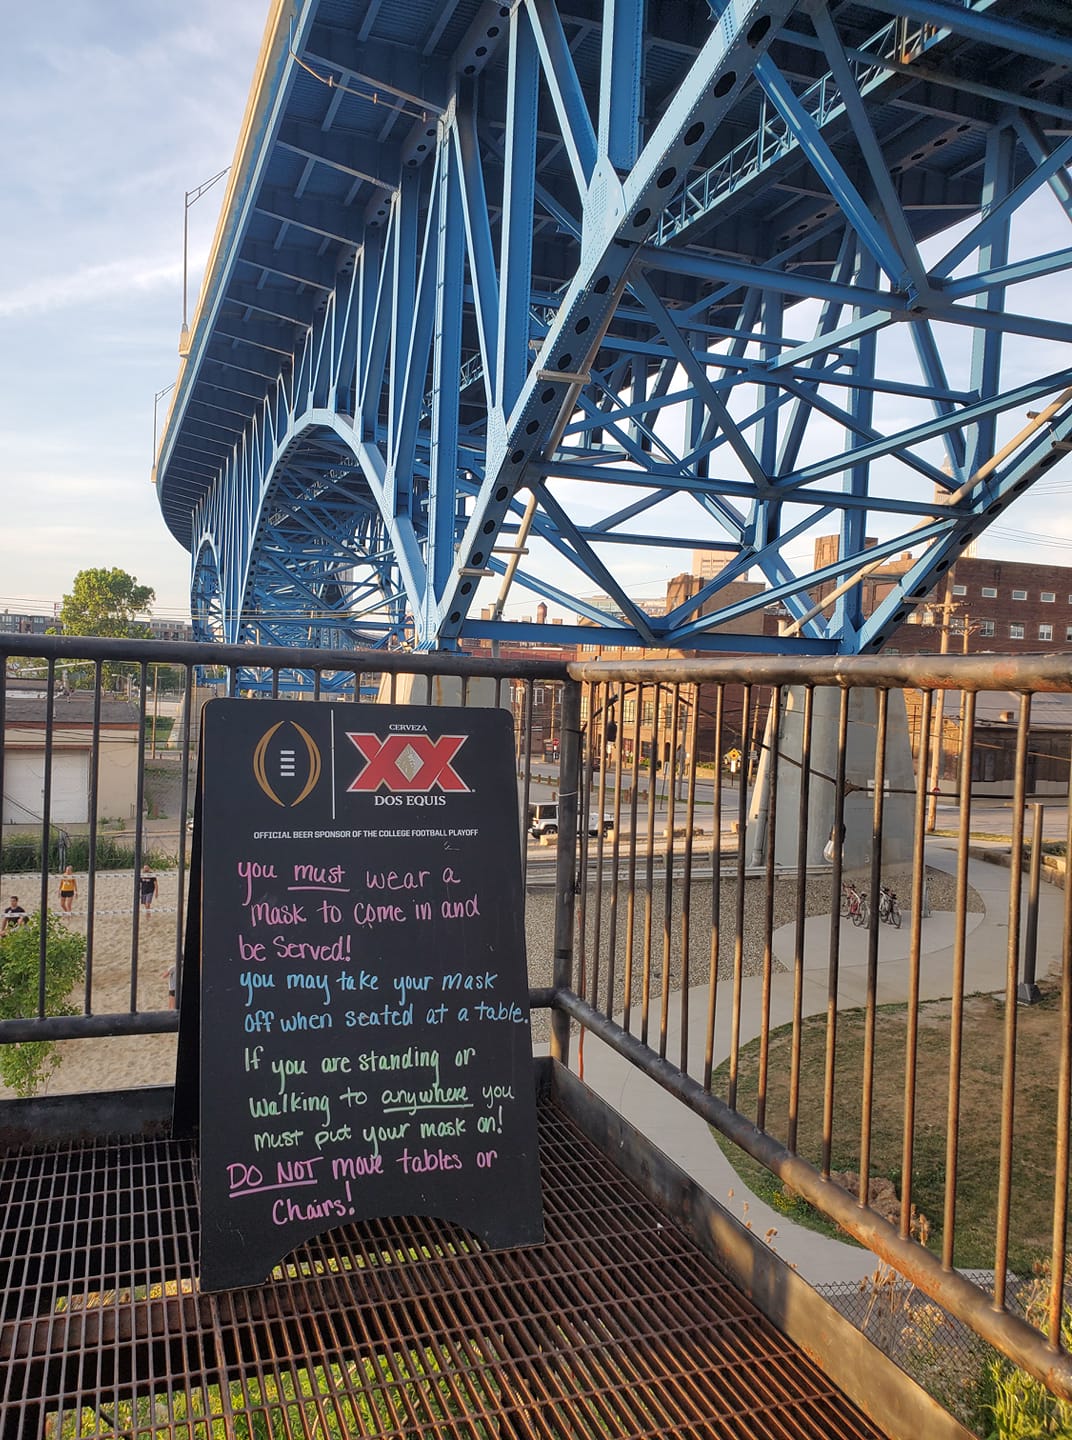 CERVEZA
XX
DOS EQUIS
OFFICIAL BEER SPONSOR OF THE COLLEGE FOOTBALL PLAYOFF
you must wear a
mask to come in and
be served!
you may take your mask
off when seated at a table.
If you are standing or
walking to anywhere you
must put your mask on!
DO NOT move tables or
Chairs!